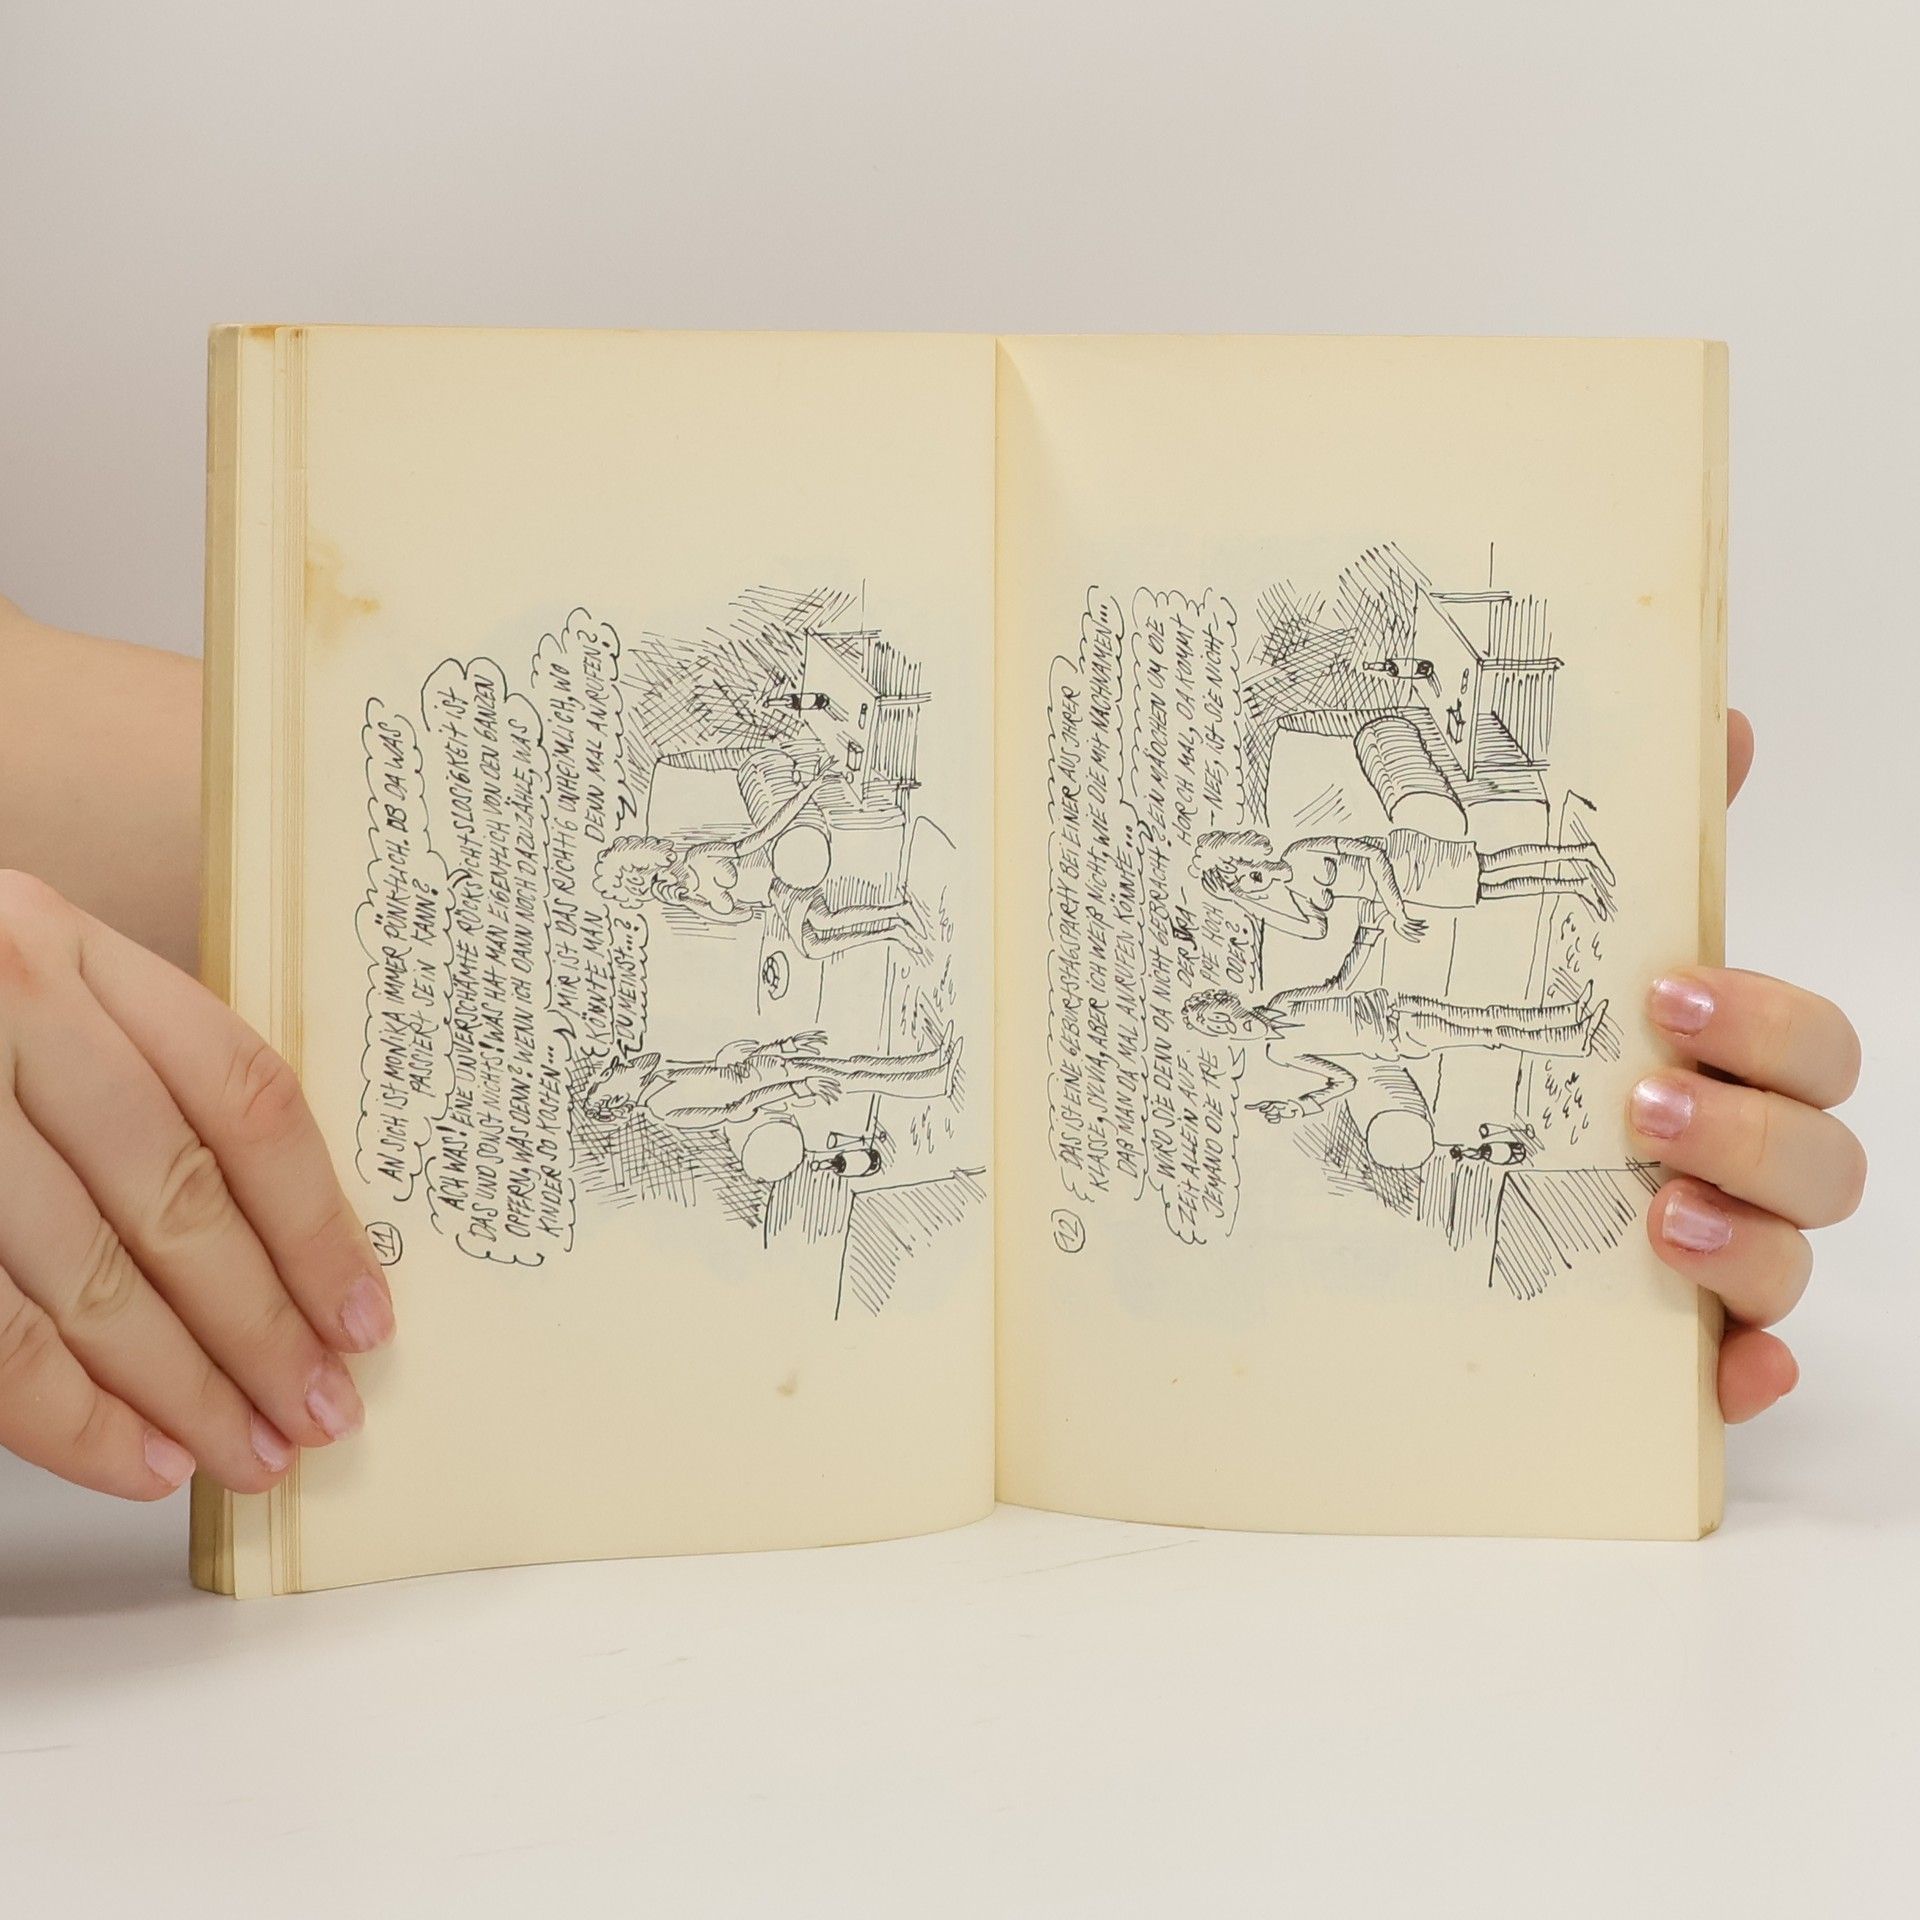 11
AN SICH IST MONIKA IMMER PÜNKTLICH. OB DA WAS
PASSIERT SEIN KANN?
ACH WAS! EINE UNVERSCHÄMTE RÜCKSICHTSLOSIGKEIT IST
DAS UND SONST NICHTS! WAS HAT MAN EIGENTLICH VON DEN GANZEN
OPFERN, WAS DENN? WENN ICH DANN NOCH DAZUZÄHLE, WAS
KINDER SO KOSTEN...
MIR IST DAS RICHTIG UNHEIMLICH, WO
KÖNNTE MAN DENN MAL ANRUFEN?
DU MEINST...?
12
DAS IST EINE GEBURTSTAGSPARTY BEI EINER AUS IHRER
KLASSE, SYLVIA, ABER ICH WEIẞ NICHT, WIE DIE MIT NACHNAMEN...
DAẞ MAN DA MAL ANRUFEN KÖNNTE...
WIRD SIE DENN DA NICHT GEBRACHT? EIN MÄDCHEN UM DIE
ZEIT ALLEIN AUF DER STRA-
HORCH MAL, DA KOMMT
JEMAND DIE TREPPE HOCH
- NEE, IST SIE NICHT -
ODER?